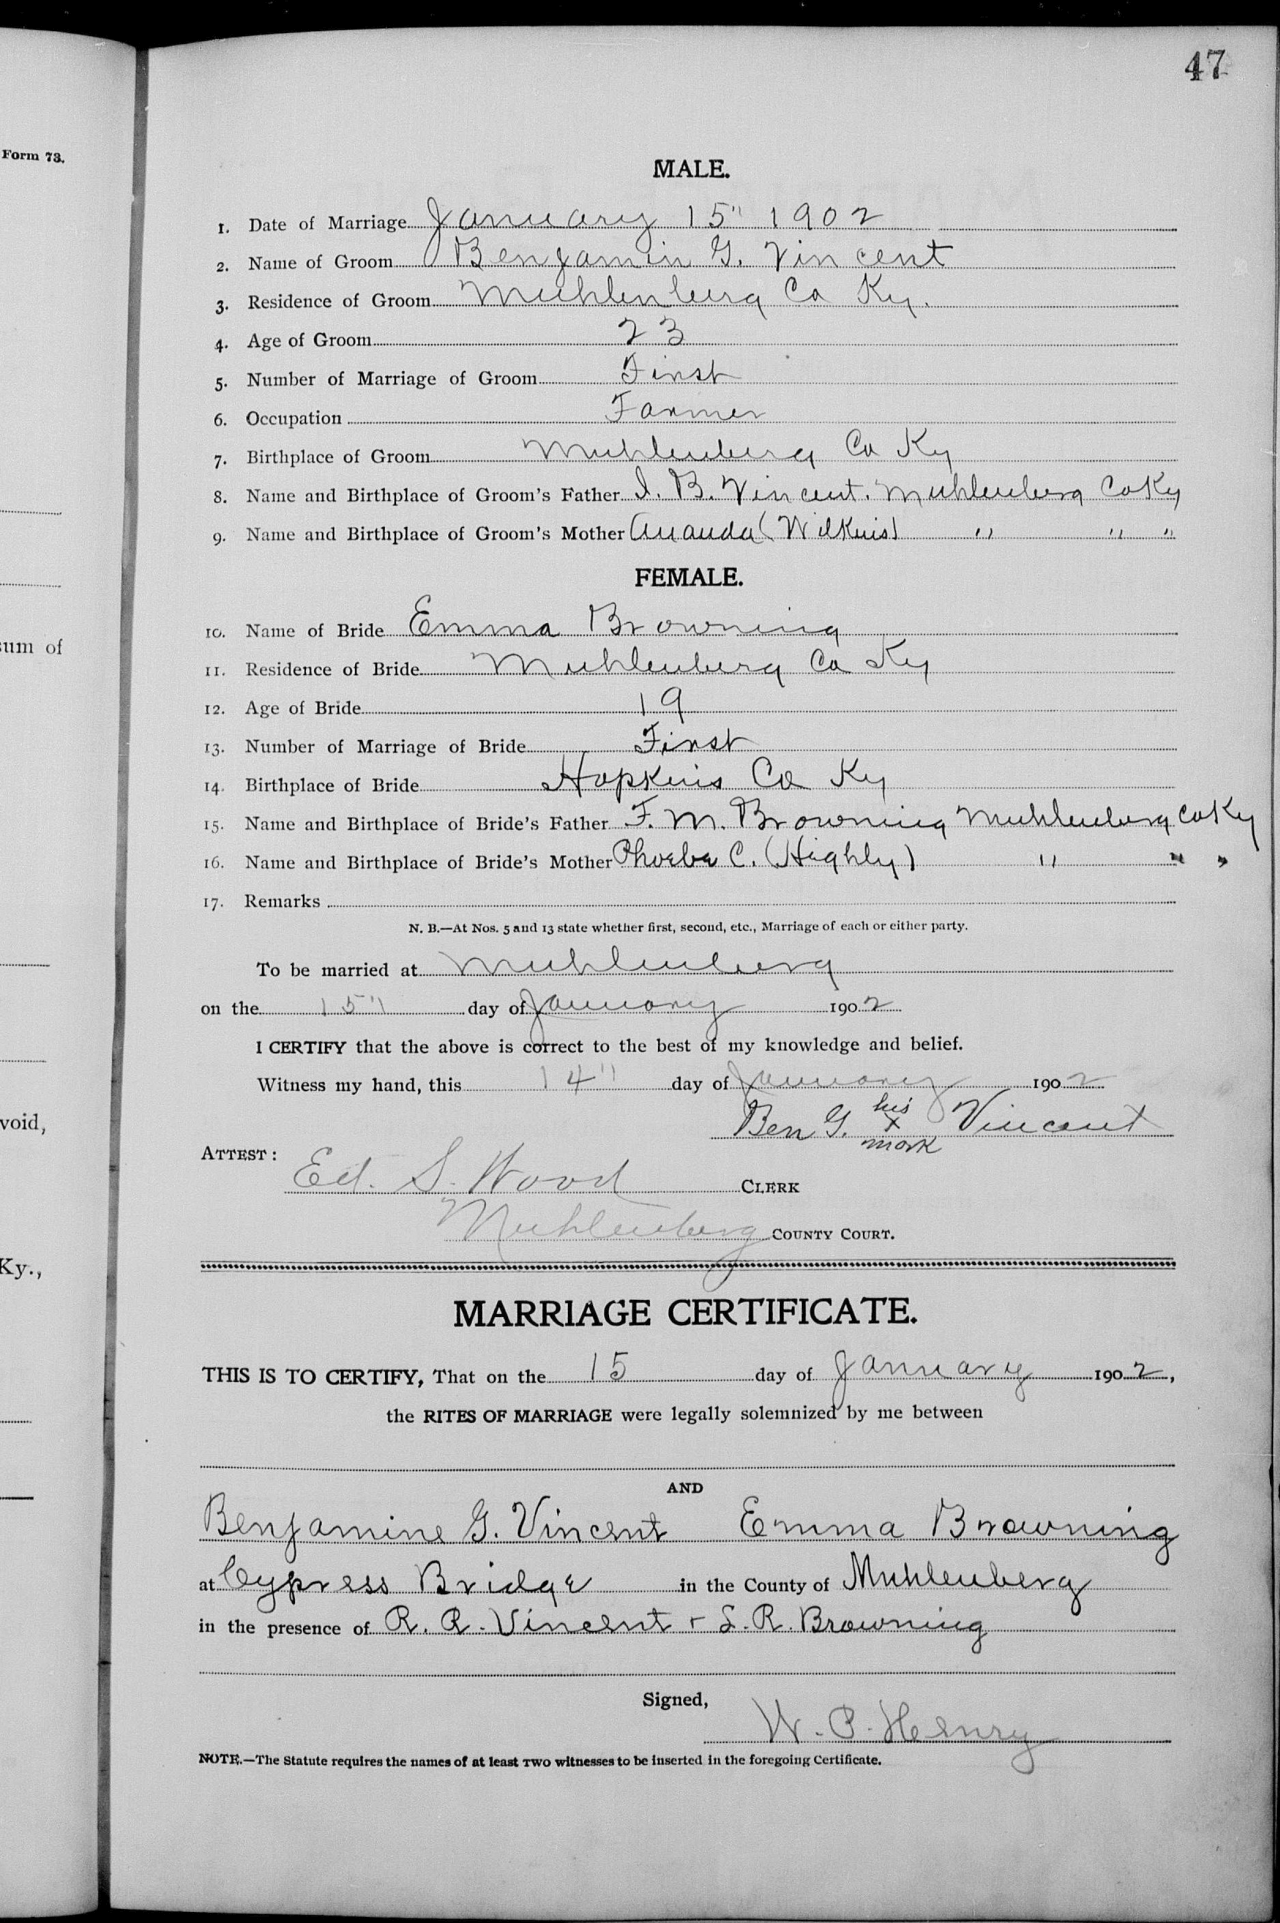 47
Form 73.
MALE.
1. Date of Marriage January 15" 1902
2. Name of Groom Benjamin G. Vincent
3. Residence of Groom Muhlenberg Co Ky.
4. Age of Groom 23
5. Number of Marriage of Groom First
6. Occupation Farmer
7. Birthplace of Groom Muhlenberg Co Ky
8. Name and Birthplace of Groom's Father J. B. Vincent. Muhlenberg Co Ky
9. Name and Birthplace of Groom's Mother Ananda (Wilkins) " " "
FEMALE.
10. Name of Bride Emma Browning
sum of
11. Residence of Bride Muhlenberg Co Ky
12. Age of Bride 19
13. Number of Marriage of Bride First
14. Birthplace of Bride Hopkins Co Ky
15. Name and Birthplace of Bride's Father F. M. Browning Muhlenberg Co Ky
16. Name and Birthplace of Bride's Mother Phoebe C. (Highly) " " "
17. Remarks
N. B.—At Nos. 5 and 13 state whether first, second, etc., Marriage of each or either party.
To be married at Muhlenberg
on the 15" day of January 1902
I CERTIFY that the above is correct to the best of my knowledge and belief.
Witness my hand, this 14" day of January 1902
void,
Ben G. his x mark Vincent
ATTEST:
Ed. S. Wood CLERK
Muhlenberg COUNTY COURT.
Ky.,
MARRIAGE CERTIFICATE.
THIS IS TO CERTIFY, That on the 15 day of January 1902,
the RITES OF MARRIAGE were legally solemnized by me between
AND
Benjamine G. Vincent Emma Browning
at Cypress Bridge in the County of Muhlenberg
in the presence of R. R. Vincent + L. R. Browning
Signed,
W. P. Henry
NOTE.—The Statute requires the names of at least TWO witnesses to be inserted in the foregoing Certificate.